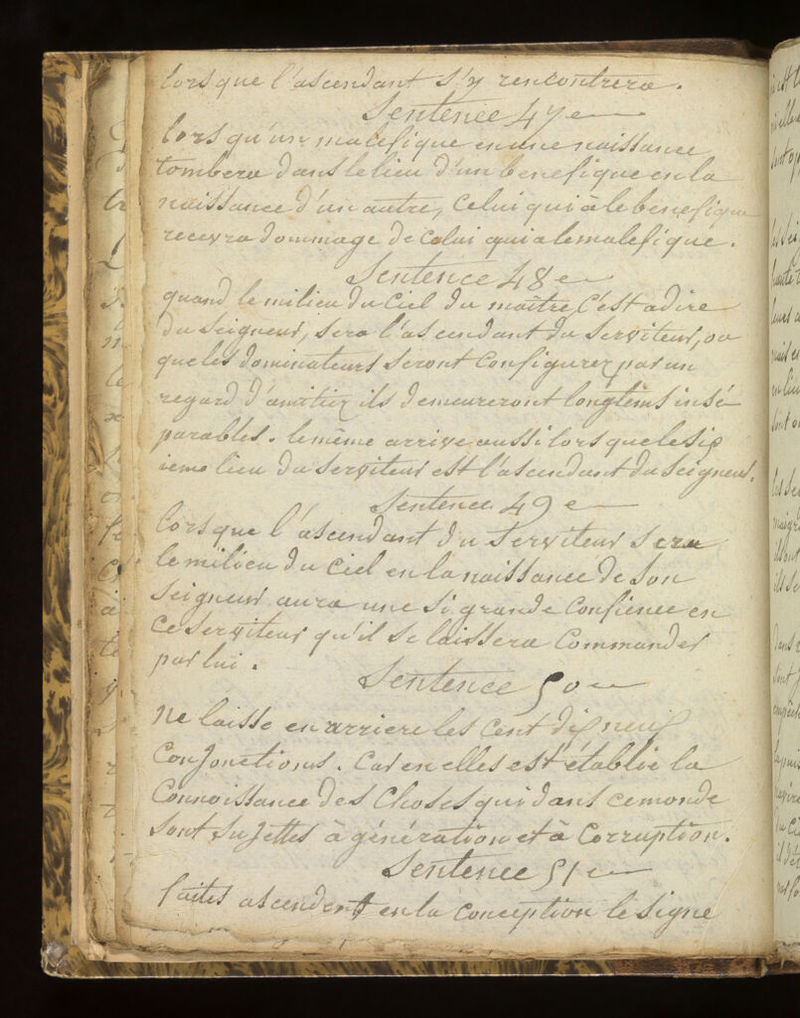 lorsque l'ascendant s'y rencontrera.
Sentence 47e
lorsqu'un malefique en une naissance
tombera dans le lieu d'un benefique en la
naissance d'un autre, Celui qui a le benefique
recevra dommage de Celui qui a le malefique.
Sentence 48e
quand le milieu du Ciel du maitre, C'est a dire
du Seigneur, sera l'ascendant du serviteur, ou
que les dominateurs seront Configurez par un
regard d'amitiez ils demeureront longtems insé
parables. le même arrive aussi lors que le Sip
ieme lieu du serviteur est l'ascendant du Seigneur.
Sentence 49e
lorsque l'ascendant du Serviteur sera
le milieu du Ciel en la naissance de son
Seigneur aura une si grande Confience en
Ce serviteur qu'il se laissera Commander
par lui.
Sentence 50e
Ne laisse en arriere les Cent dipneuf
Conjonctions. Car en elles est établie la
Connoissance des Choses qui dans ce monde
sont sujettes à génération et à Corruption.
Sentence 51e
faites ascendent en la Conception le signe